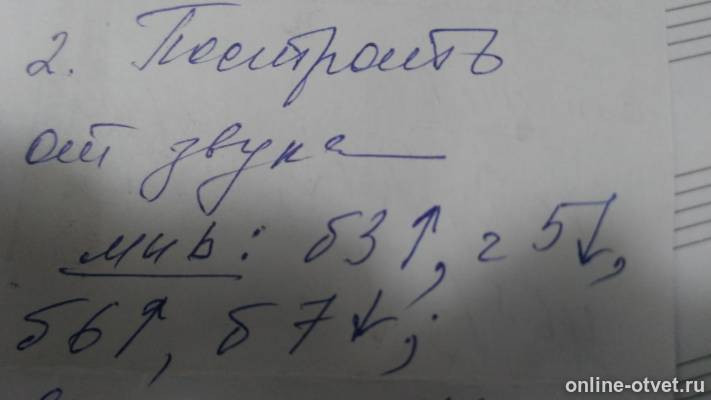 2. Построить
от звука
ми b: б3↑, ч5↓,
б6↑, б7↓;
online-otvet.ru